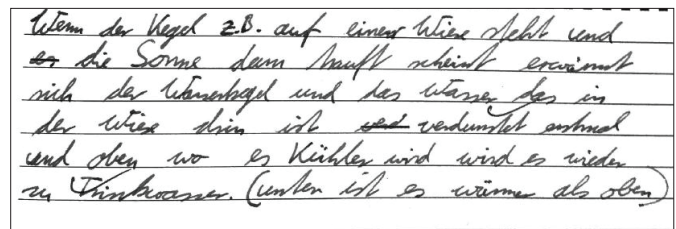 Wenn der Kegel z.B. auf einer Wiese steht und
er die Sonne dann drauft scheint erwärmt
sich der Wasserkegel und das Wasser das in
der Wiese drin ist und verdunstet erstmal
und oben wo es Kühler wird wird es wieder
zu Trinkwasser. (unten ist es wärmer als oben)